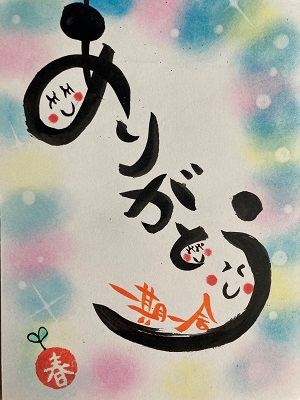 ありがとう
一期一会
春